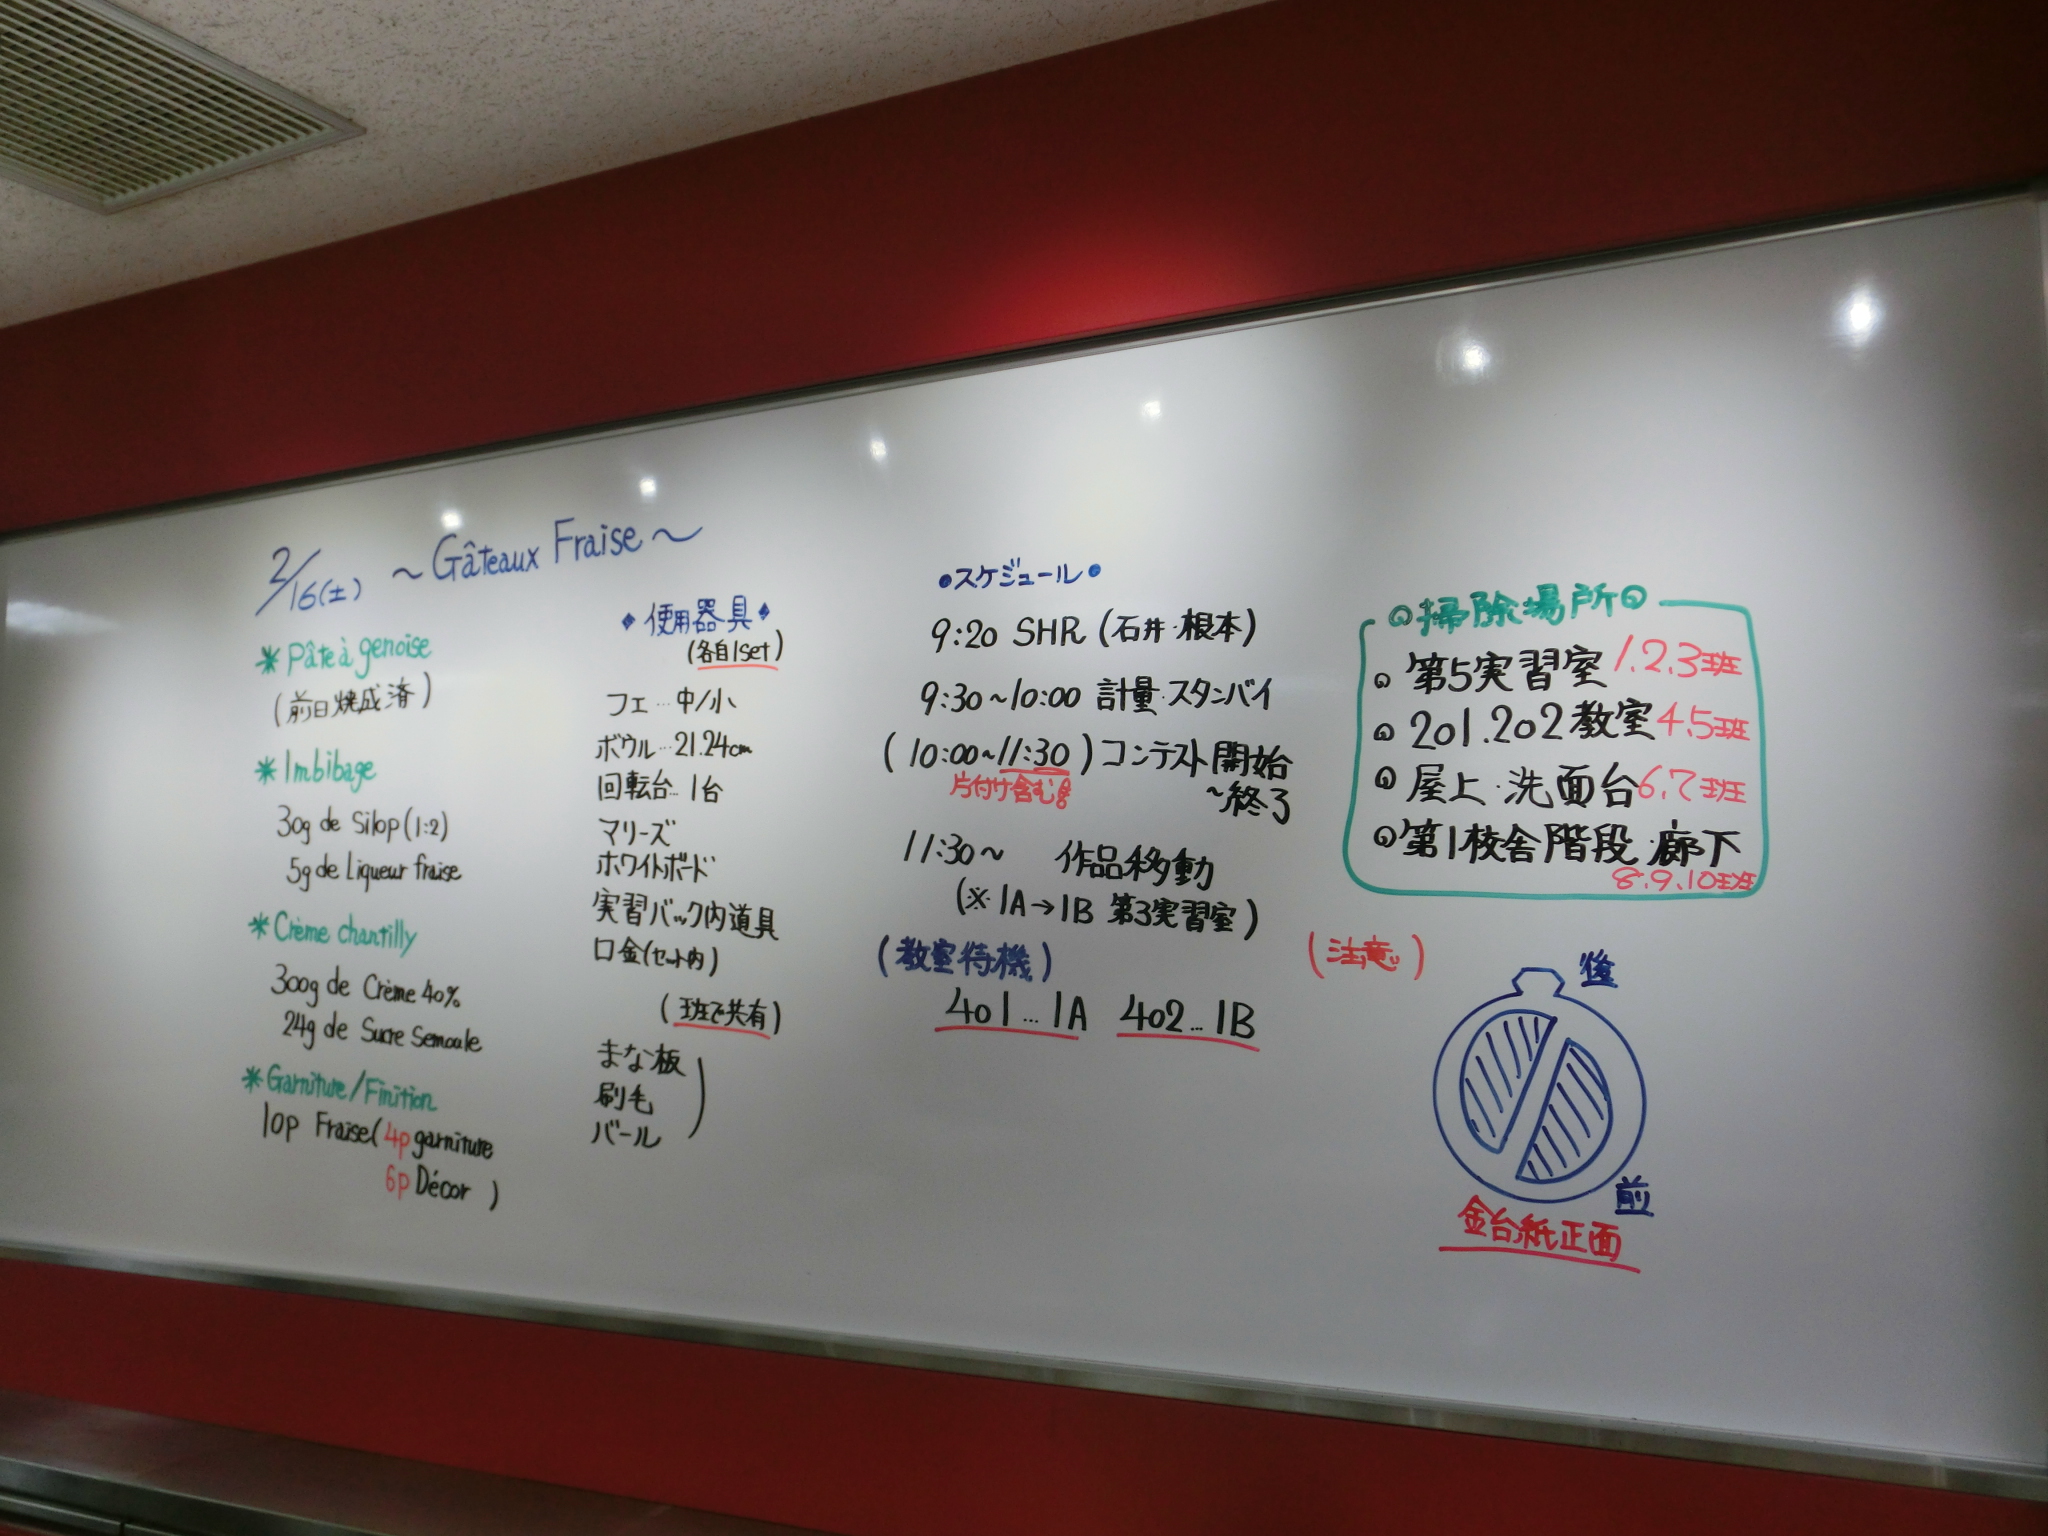 2/16(土) ～Gâteaux Fraise～
＊Pâte à genoise
(前日焼成済)
＊Imbibage
30g de Silop(1:2)
5g de Liqueur fraise
＊Crème chantilly
300g de Crème 40%
24g de Sucre Semoule
＊Garniture/Finition
10p Fraise(4p garniture
6p Décor)
◆使用器具◆
(各自1set)
フェ…中/小
ボウル…21.24cm
回転台…1台
マリーズ
ホワイトボード
実習バック内道具
口金(セット内)
(班で共有)
まな板
刷毛
バール
●スケジュール●
9:20 SHR (石井・根本)
9:30～10:00 計量・スタンバイ
(10:00～11:30) コンテスト開始
片付け含む!!
～終了
11:30～ 作品移動
(※1A→1B 第3実習室)
(教室待機)
401…1A 402…1B
◎掃除場所◎
第5実習室 1.2.3班
201.202教室 4.5班
屋上・洗面台 6.7班
第1校舎階段・廊下
8.9.10班
(注意)
後
前
金台紙正面